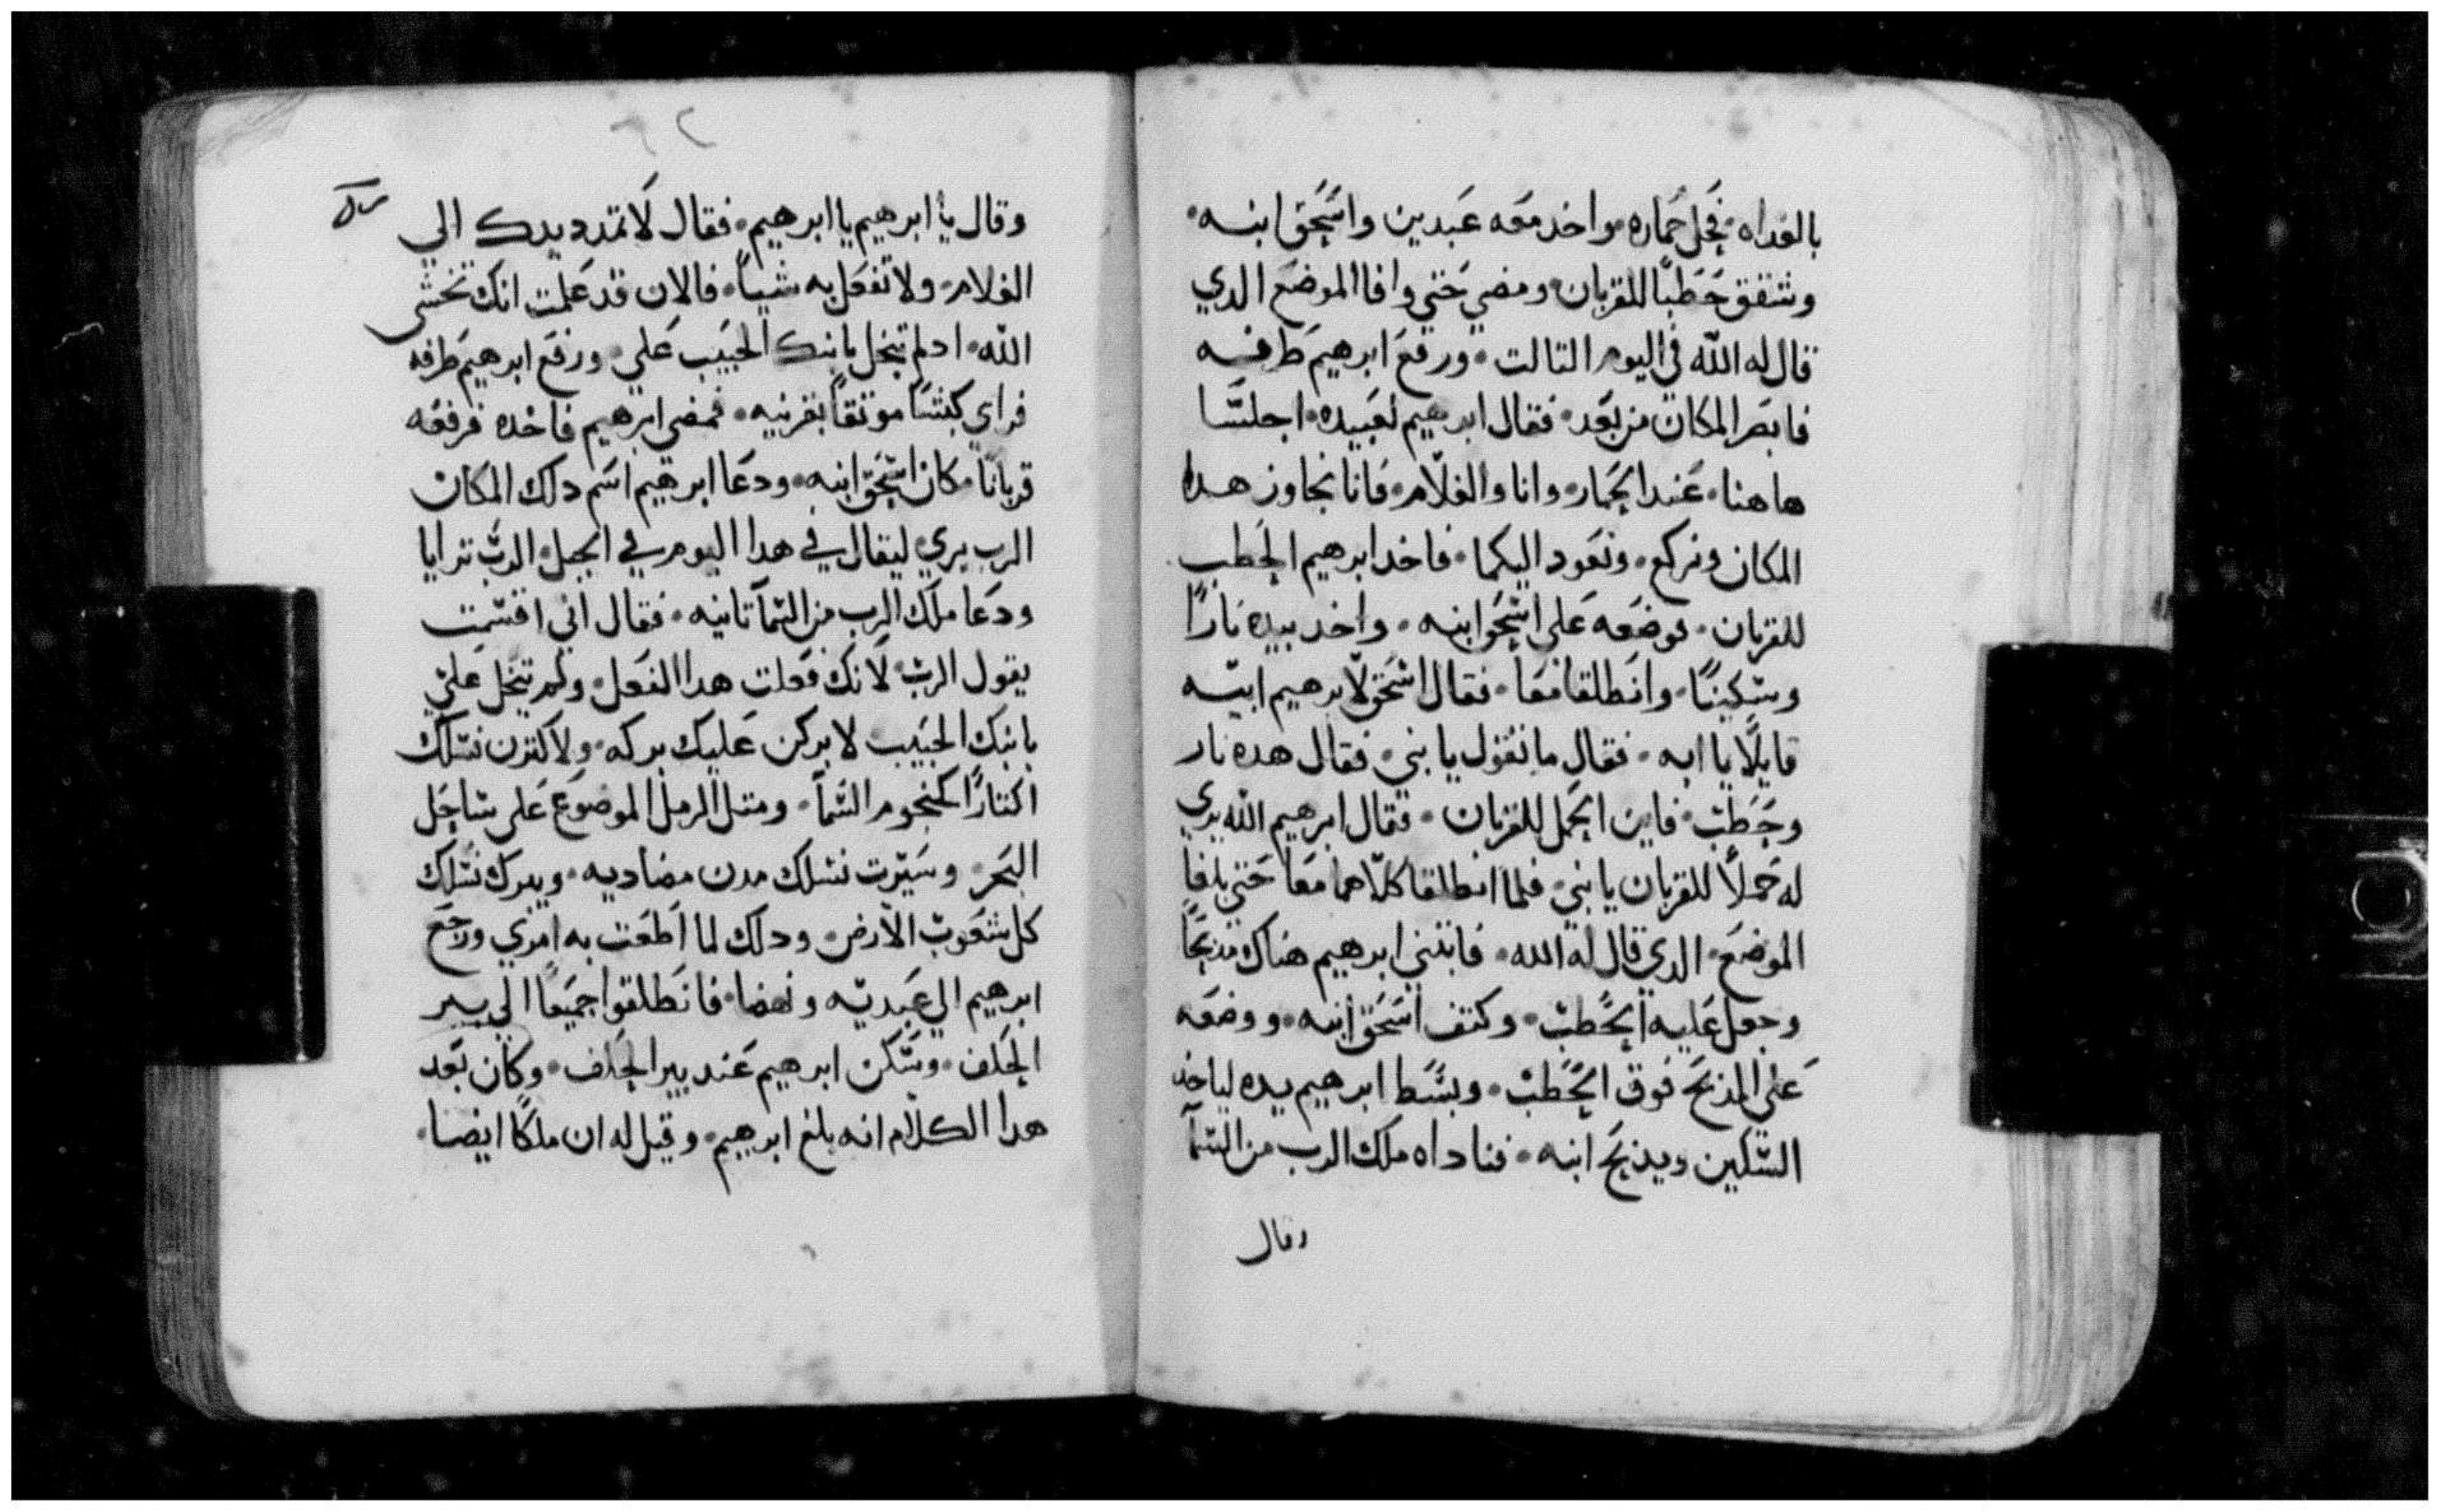 بالغداه • فحمل حماره • واخد معه عبدين واسحق ابنه •
وشقق حطبًا للقربان ومضي حتي وافا الموضع الدي
قال له الله في اليوم التالت • ورفع ابرهيم طرفه
فابصر المكان من بعد • فقال ابرهيم لعبيده • اجلسا
هاهنا • عند الحمار • وانا والغلام • فانا نجاوز هدا
المكان ونركع • ونعود اليكما • فاخد ابرهيم الحطب
للقربان • فوضعه علي اسحق ابنه • واخد بيده نارًا
وسكينًا • وانطلقا معا • فقال اسحق لابرهيم ابيه
قايلًا يا ابه • فقال ما تقول يا بني • فقال هده نار
وحطب • فاين الحمل للقربان • فقال ابرهيم الله يري
له حملًا للقربان يا بني • فلما انطلقا كلاهما معا حتي بلغا
الموضع • الدي قال له الله • فابتني ابرهيم هناك مدبحًا
وجعل عليه الحطب • وكتف اسحق ابنه • ووضعه
علي المذبح فوق الحطب • وبسط ابرهيم يده لياخد
السكين ويذبح ابنه • فناداه ملاك الرب من السمآ
وقال
٦٢
وقال يا ابرهيم يا ابرهيم • فقال لا تمدد يدك الي
الغلام • ولا تفعل به شياً • فالان قد علمت انك تخشي
الله • ادلم تبخل بابنك الحبيب علي • ورفع ابرهيم طرفه
فراي كبشًا موتقًا بقرنيه • فمضي ابرهيم فاخده فرفعه
قربانًا مكان اسحق ابنه • ودعا ابرهيم اسم دلك المكان
الرب يري • ليقال في هدا اليوم في الجبل • الرب ترايا
ودعا ملاك الرب من السمآ تانيه • فقال اني اقسمت
يقول الرب • لانك فعلت هدا الفعل • ولم تبخل علي
بابنك الحبيب • لابركن عليك بركه • ولاكترن نسلك
اكتارًا كنجوم السمآ • ومتل الرمل الموضوع علي ساحل
البحر • وسيرت نسلك مدن مضاديه • ويبرك نسلك
كل شعوب الارض • ودلك لما اطعت به امري ورجع
ابرهيم الي عبديه ونهضا • فانطلقوا جميعًا الي بير
الحلف • وسكن ابرهيم عند بير الحلف • وكان بعد
هدا الكلام انه بلغ ابرهيم • وقيل له ان ملكا ايضا •